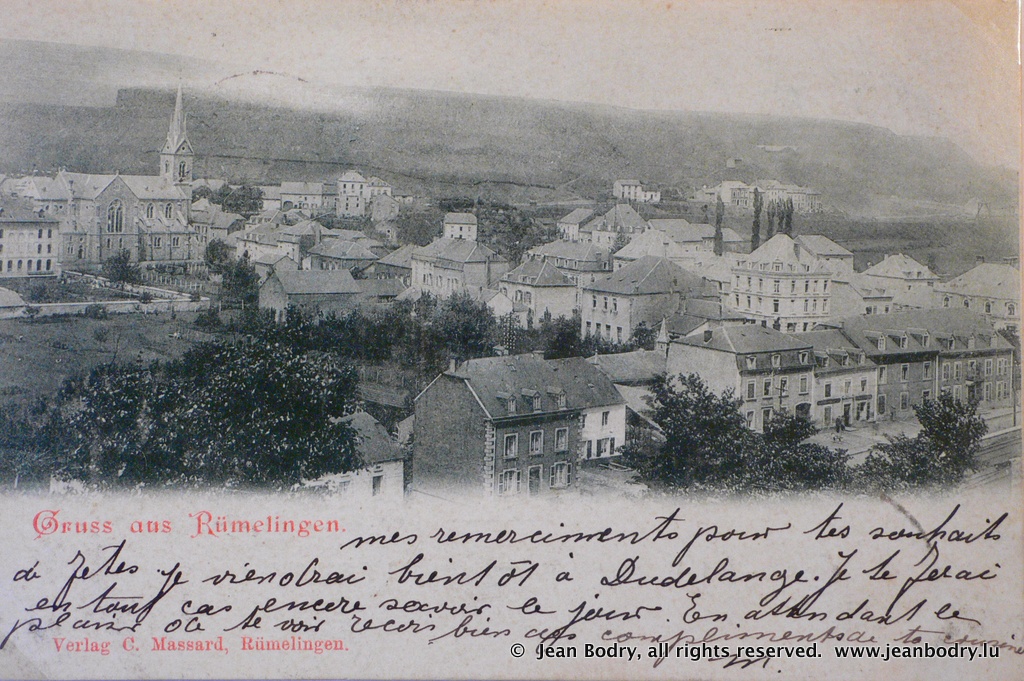 Gruss aus Rümelingen.
mes remerciments pour tes souhaits
de fetes Je viendrai bientôt à Dudelange. Je te ferai
en tout cas encore savoir le jour. En attendant le
plaisir de te voir reçois bien des compliments de ta cousine
M.
Verlag C. Massard, Rümelingen.
© Jean Bodry, all rights reserved. www.jeanbodry.lu